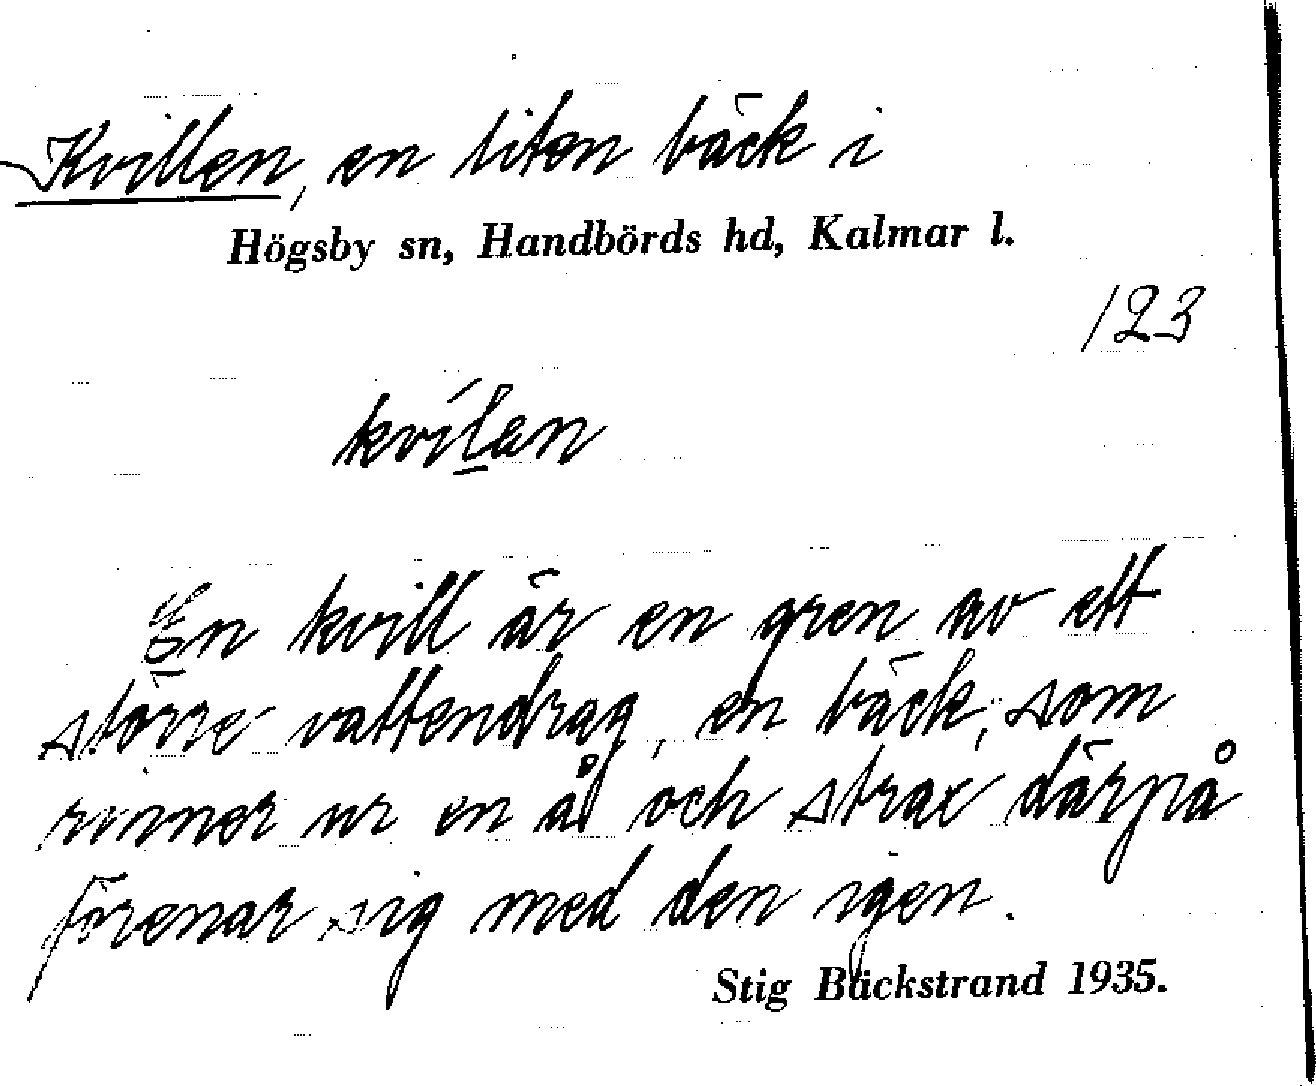 Kvillen, en liten bäck i
Högsby sn, Handbörds hd, Kalmar l.
123
kvílan
En kvill är en gren av ett
större vattendrag, en bäck, som
rinner ur en å och strax därpå
förenar sig med den igen.
Stig Bäckstrand 1935.